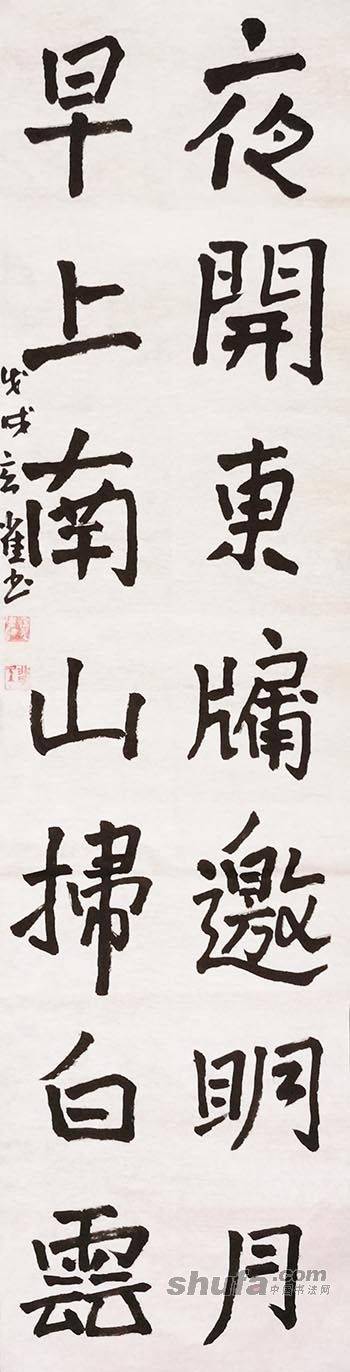 夜開東牖邀明月
早上南山掃白雲
戊戌玄雀书
shufa.com
中国书法网